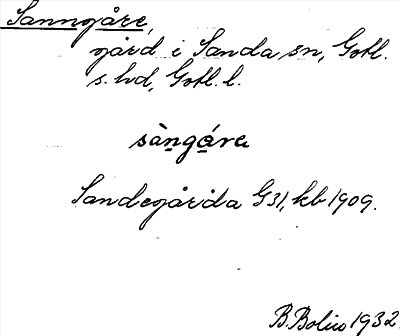 Sanngåre,
gård i Sanda sn, Gotl.
s. hd, Gotl. l.
sàngáre
Sandegårda G31, kb 1909.
B. Bolin 1932